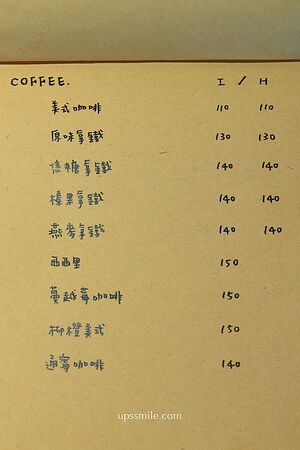 COFFEE. I / H
美式咖啡 110 110
原味拿鐵 130 130
焦糖拿鐵 140 140
榛果拿鐵 140 140
燕麥拿鐵 140 140
西西里 150
蔓越莓咖啡 150
柳橙美式 150
通寧咖啡 140
upssmile.com